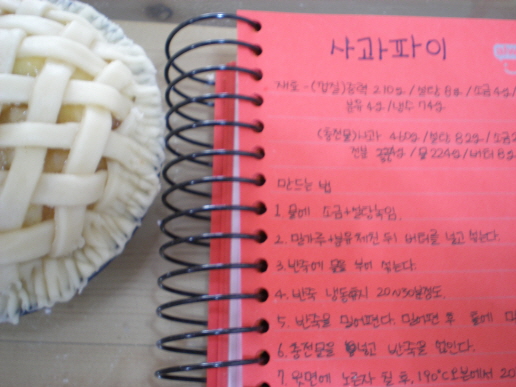 사과파이
재료-(껍질)중력 210g/설탕 8g/소금 4g/
분유 4g/냉수 74g
(충전물)사과 460g/설탕 82g/소금
전분 /물 224g/버터 8g
만드는 법
1. 물에 소금+설탕녹임.
2. 밀가루+분유 체친 뒤 버터를 넣고 섞는다.
3. 반죽에 물을 부어 섞는다.
4. 반죽 냉동휴지 20~30분정도.
5. 반죽을 밀어편다. 밀어편 후 틀에
6. 충전물을 넣고 반죽을 엎는다.
7. 윗면에 노른자 칠 후, 190℃오븐에서 20